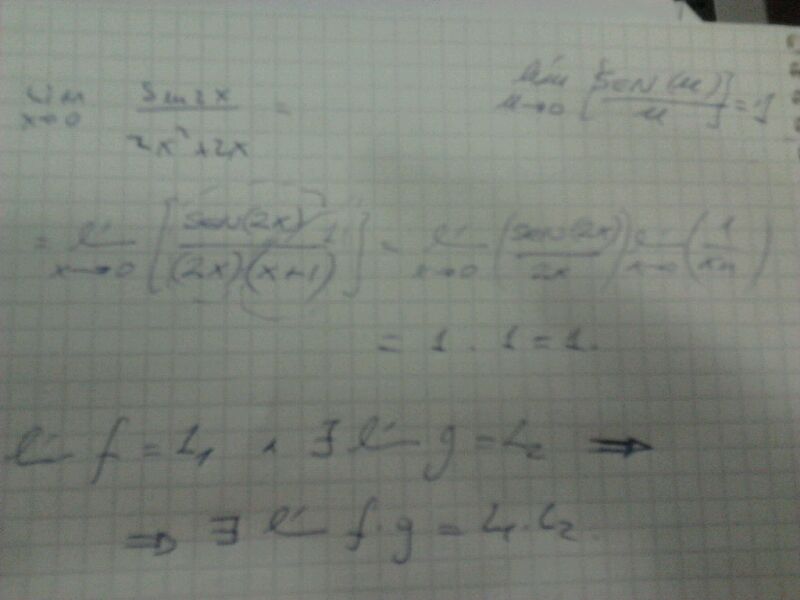 lim x→0 sen 2x / 2x² + 2x =
lím u→0 [SEN(u) / u] = 1
= lí x→0 [SEN(2x) · 1 / (2x)·(x+1)] = lí x→0 (SEN(2x) / 2x) lí x→0 (1 / x+1)
= 1 . 1 = 1.
lí f = L₁ ∧ ∃ lí g = L₂ ⇒
⇒ ∃ lí f·g = L₁·L₂.